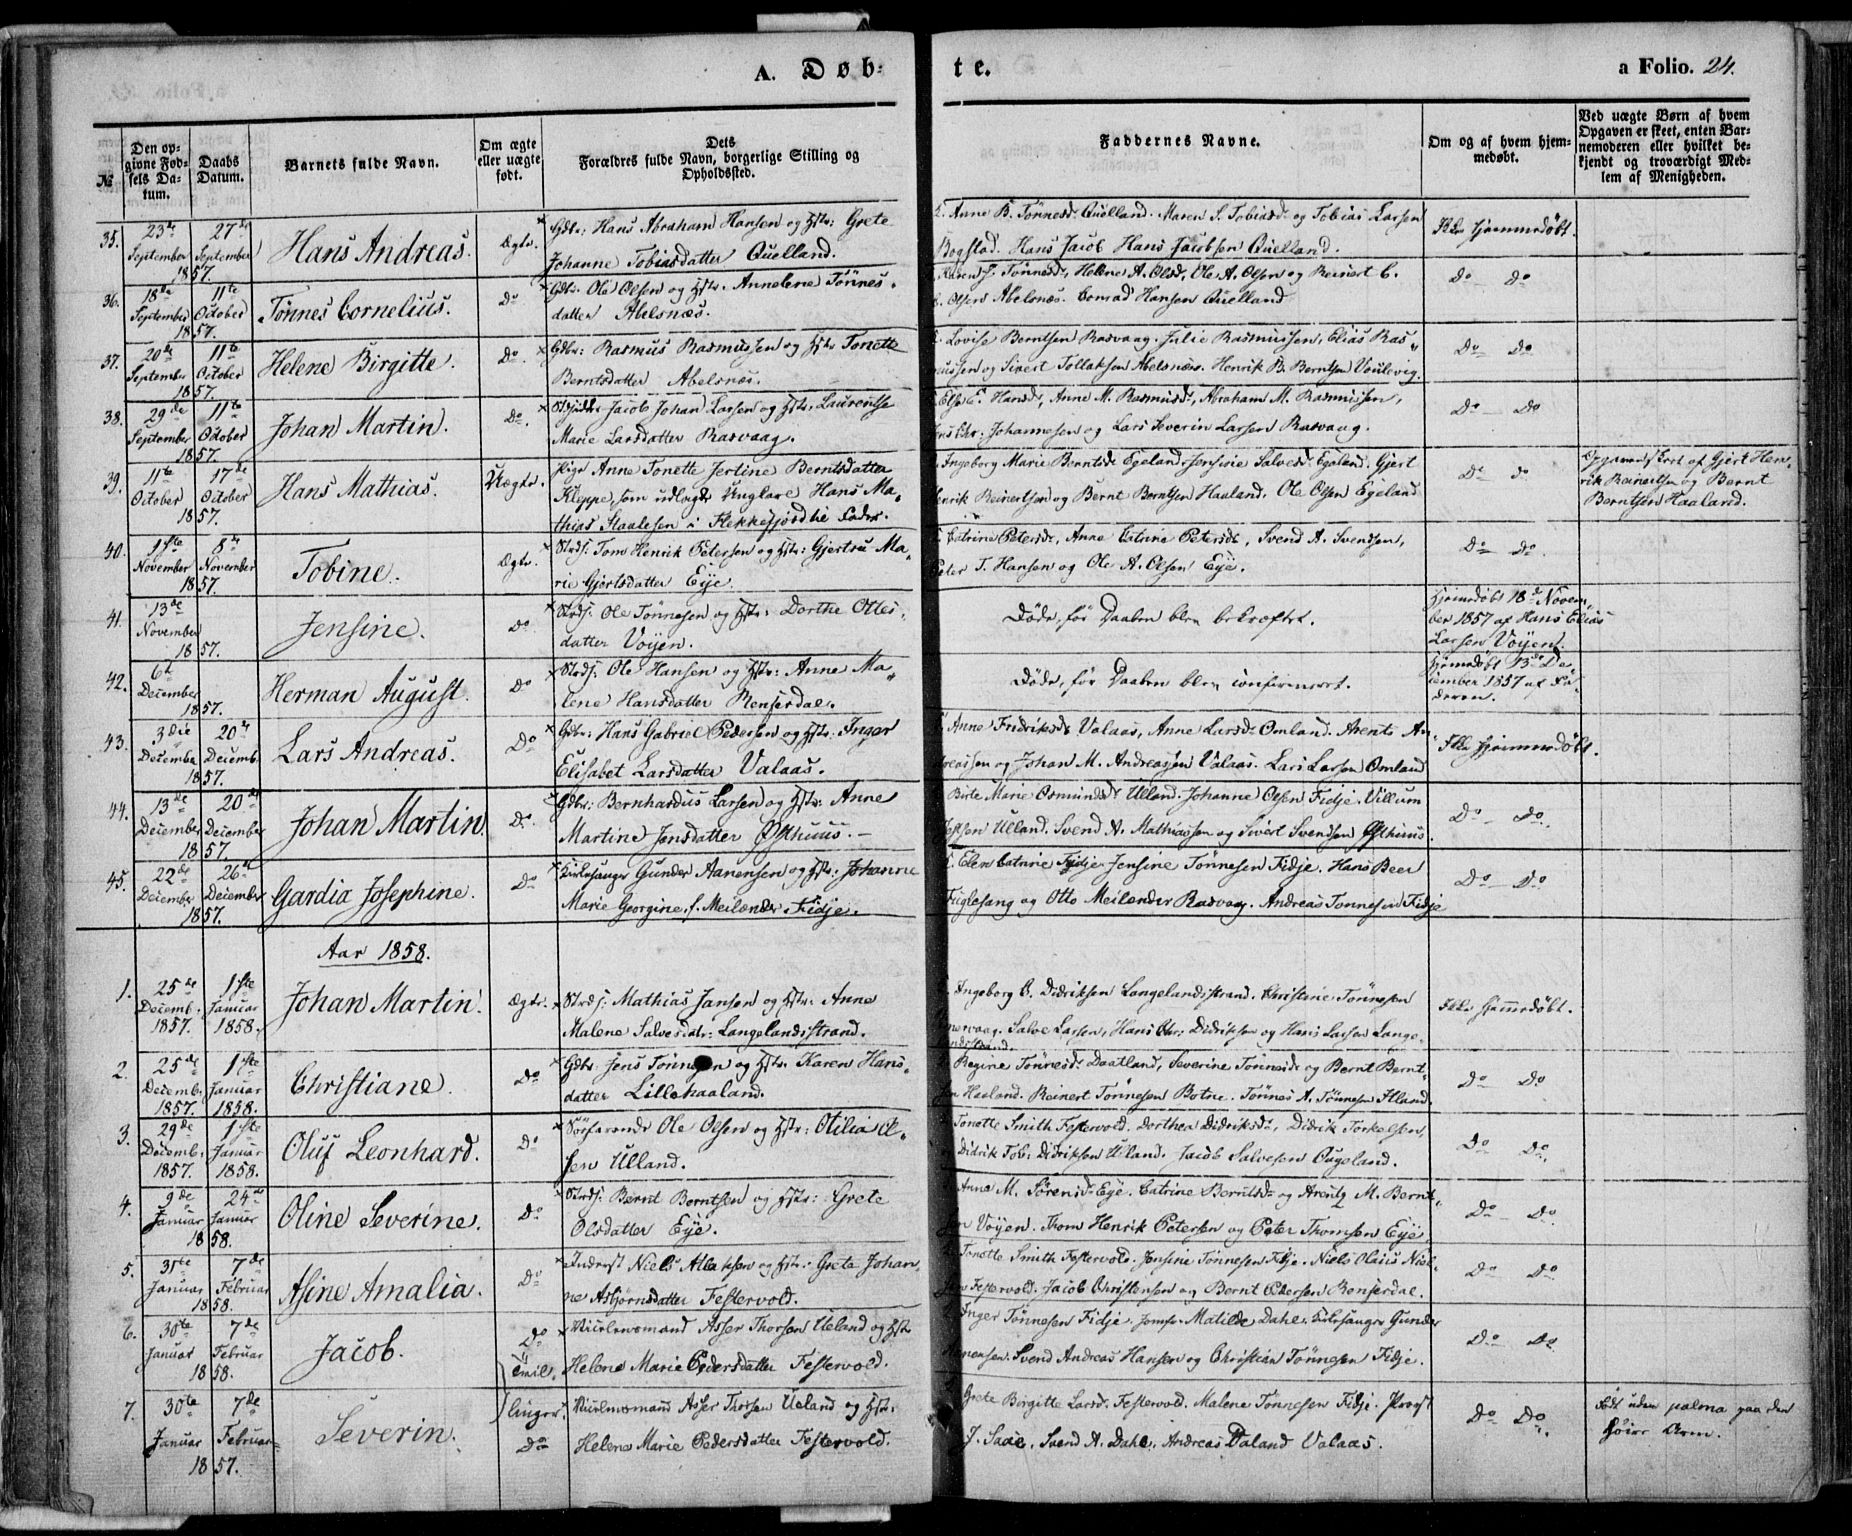 A. Døb-
te.
a Folio. 24.
№
Den op-
givne Fød-
sels Da-
tum.
Daabs
Datum.
Barnets fulde Navn.
Om ægte
eller uægte
født.
Dets
Forældres fulde Navn, borgerlige Stilling og
Opholdssted.
Faddernes Navne.
Om og af hvem hjem-
medøbt.
Ved uægte Børn af hvem
Opgaven er skeet, enten Bar-
nemoderen eller hvilket be-
kjendt og troværdigt Med-
lem af Menigheden.
35. 23de September 27de September 1857. Hans Andreas. Ægte. Gdbr: Hans Abraham Hansen og Hstr: Grete
Johanne Tobiasdatter Quelland.
Anne B. Tønnesd. Quelland. Maren S. Tobiasd. og Tobias Larsen
Bogstad. Hans Jacob Hans Jacobsen Quelland.
Ikke hjemmedøbt.
36. 18de September 11te October 1857. Tønnes Cornelius. Do Gdbr: Ole Olsen og Hstr. Annelene Tønnes-
datter Abelsnæs.
Karen S. Tønnesd., Helene A. Olsd., Ole A. Olsen og Reinert C.
Olsen Abelsnæs. Conrad Hansen Quelland
Do Do
37. 20de September 11te October 1857. Helene Birgitte. Do. Gdbr: Rasmus Rasmussen og Hstr Tonette
Berntsdatter Abelsnæs.
Lovise Berntsen Rasvaag. Julie Rasmussen, Elias Ras-
mussen og Sivert Tollaksen Abelsnæs. Henrik B. Berntsen Voulevig.
Do Do
38. 29de September 11te October 1857. Johan Martin. Do. Jacob Johan Larsen og Hstr: Laurentse
Marie Larsdatter Rasvaag.
Else E. Hansd., Anne M. Rasmusd., Abraham M. Rasmussen,
Jens Chr: Johannesen og Lars Severin Larsen Rasvaag.
Do Do
39. 11te October 17de October 1857. Hans Mathias. Uægte. Pige Anne Tonette Jertine Berntsdatter
Kleppe, som udlagde Ungkarl Hans Ma-
thias Staalesen i Flekkefjord til Fader.
Ingeborg Marie Berntsd. Egeland. Salvesd. Egeland. Gjert
Henrik Reinertsen og Bernt Berntsen Haaland. Ole Olsen Egeland
Do do
Opgaven skeet af Gjert Hen-
rik Reinertsen og Bernt
Berntsen Haaland.
40. 1ste November 8de November 1857. Tobine. Ægte. Strds: Tom Henrik Petersen og Hstr: Gjertru Ma-
rie Gjertsdatter Eye.
Catrine Petersd., Anne Catrine Petersd., Svend A. Svendsen,
Peter T. Hansen og Ole A. Olsen Eye.
Do Do.
41. 13de November 1857. Jensine. Do Strds: Ole Tønnesen og Hstr: Dorthe Ottes-
datter Voyen.
Døde, før Daaben blev bekræftet.
Hjemdøbt 18de Novem-
ber 1857 af Hans Elias
Larsen Voyen.
42. 6te December 1857. Herman August. Do Strds: Ole Hansen og Hstr: Anne Ma-
lene Hansdatter Renserdal.
Døde, før Daaben blev confirmeret.
Hjemdøbt 13de De-
cember 1857 af Fa-
deren.
43. 3die December 20de Decemb. 1857. Lars Andreas. Do Gdbr: Hans Gabriel Pedersen og Hstr: Inger
Elisabet Larsdatter Valaas.
Anne Fredriksd. Valaas, Anne Larsd. Omland. Arent An-
dreassen og Johan M. Andreassen Valaas. Lars Larsen Omland
Ikke hjemmedøbt.
44. 13de December 20de December 1857. Johan Martin. Do. Gdbr: Bernhardus Larsen og Hstr: Anne
Martine Jensdatter Østhuus.
Birte Marie Osmundsd. Ulland. Johanne Olsen Fidje. Villum
Ulland. Svend A. Mathiassen og Sivert Svendsen Østhuus.
Do Do.
45. 22de December 26de December 1857. Gardia Josephine. Do Kirkesanger Gunder Aanensen og Hstr: Johanne
Marie Georgine f. Meilænder, Fidje.
Elen Catrine Fidje. Jensine Tønnesen Fidje. Hans Beer
Fuglesang og Otto Meilender Rasvaag. Andreas Tønnesen Fidje
Do Do.
Aar 1858.
1. 25de Decemb. 1857. 1ste Januar 1858. Johan Martin. Ægte. Strds: Mathias Jansen og Hstr: Anne
Malene Salvesdtr: Langelandsstrand.
Ingeborg B. Didriksen Langelandsstrand. Christine Tønnesen
Salve Larsen, Hans Chr: Didriksen og Hans Larsen Lange-
landsstrand.
Ikke hjemmedøbt.
2. 25de Decemb. 1857. 1ste Januar 1858. Christiane. Do Gdbr. Jens Tønnesen og Hstr. Karen Hans-
datter Lillehaaland.
Regine Tønnesd. Daatland, Severine Tønnesd. og Bernt Bernt-
sen Haaland. Reinert Tønnesen Botne. Tønnes A. Tønnesen Ulland.
Do Do
3. 29de Decemb. 1857. 1ste Januar 1858. Oluf Leonhard. Do Søfarende Ole Olsen og Hstr: Otilia Ol-
sen Ulland.
Tonette Smith Festervold. Dorthea Didriksd., Didrik Torkelsen,
Didrik Tob: Didriksen Ulland. Jacob Salvesen Øugeland.
Do Do.
4. 9de Januar 24de Januar 1858. Oline Severine. Do Strds: Bernt Berntsen og Hstr: Grete
Olsdatter Eye.
Anne M. Sørensd. Eye. Catrine Berntsd. og Arentz M. Bernt-
sen Voyen. Thom Henrik Petersen og Peter Thomsen Eye.
Do Do.
5. 31te Januar 7de Februar 1858. Asine Amalia. Do Inderst Niels Atlaksen og Hstr: Grete Johan-
ne Asbjørnsdatter Festervold.
Tonette Smith Festervold. Jensine Tønnesen Fidje. Niels Olaus Niel-
sen Festervold. Jacob Christensen og Bernt Pedersen Renserdal.
Do Do.
6. 30te Januar 7de Februar 1858. Jacob. Do Asser Thorsen Ueland og Hstr
Helene Marie Pedersdatter Festervold.
Inger Tønnesen Fidje. Jomfr. Matilde Dahl. Kirkesanger Gunder
Aanensen. Svend Andreas Hansen og Christian Tønnesen Fidje.
Do Do
Tvil-
linger.
7. 30te Januar 7de Februar 1857. Severin. Do Asser Thorsen Ueland og Hstr:
Helene Marie Pedersdatter Festervold.
Grete Birgitte Larsd. Festervold. Malene Tønnesen Fidje. Provst
J. Saae. Svend A. Dahl. Andreas Daland Valaas.
Do Do.
Født uden palma paa den
høire Arm.